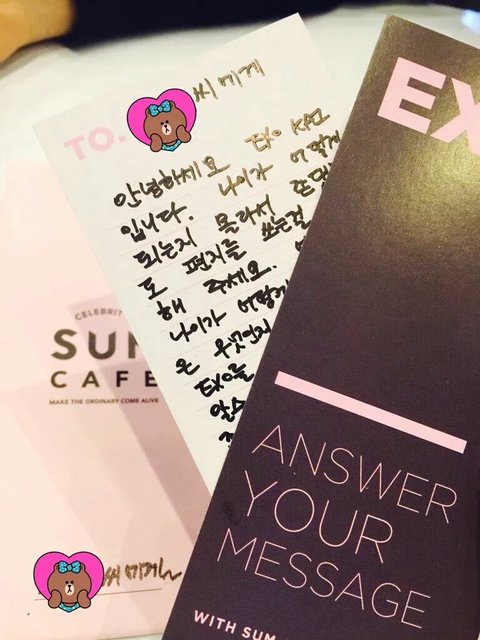 TO. 씨에게
안녕하세요 EXO
입니다. 나이가 어떻게
되는지 몰라서 존댓
로 편지를 쓰는걸
해 주세요.
나이가 어떻게
은 무엇인지
EXO를
알수
CELEBRIT
SUM
CAFE
MAKE THE ORDINARY COME ALIVE
씨에게
EX
ANSWER
YOUR
MESSAGE
WITH SUM